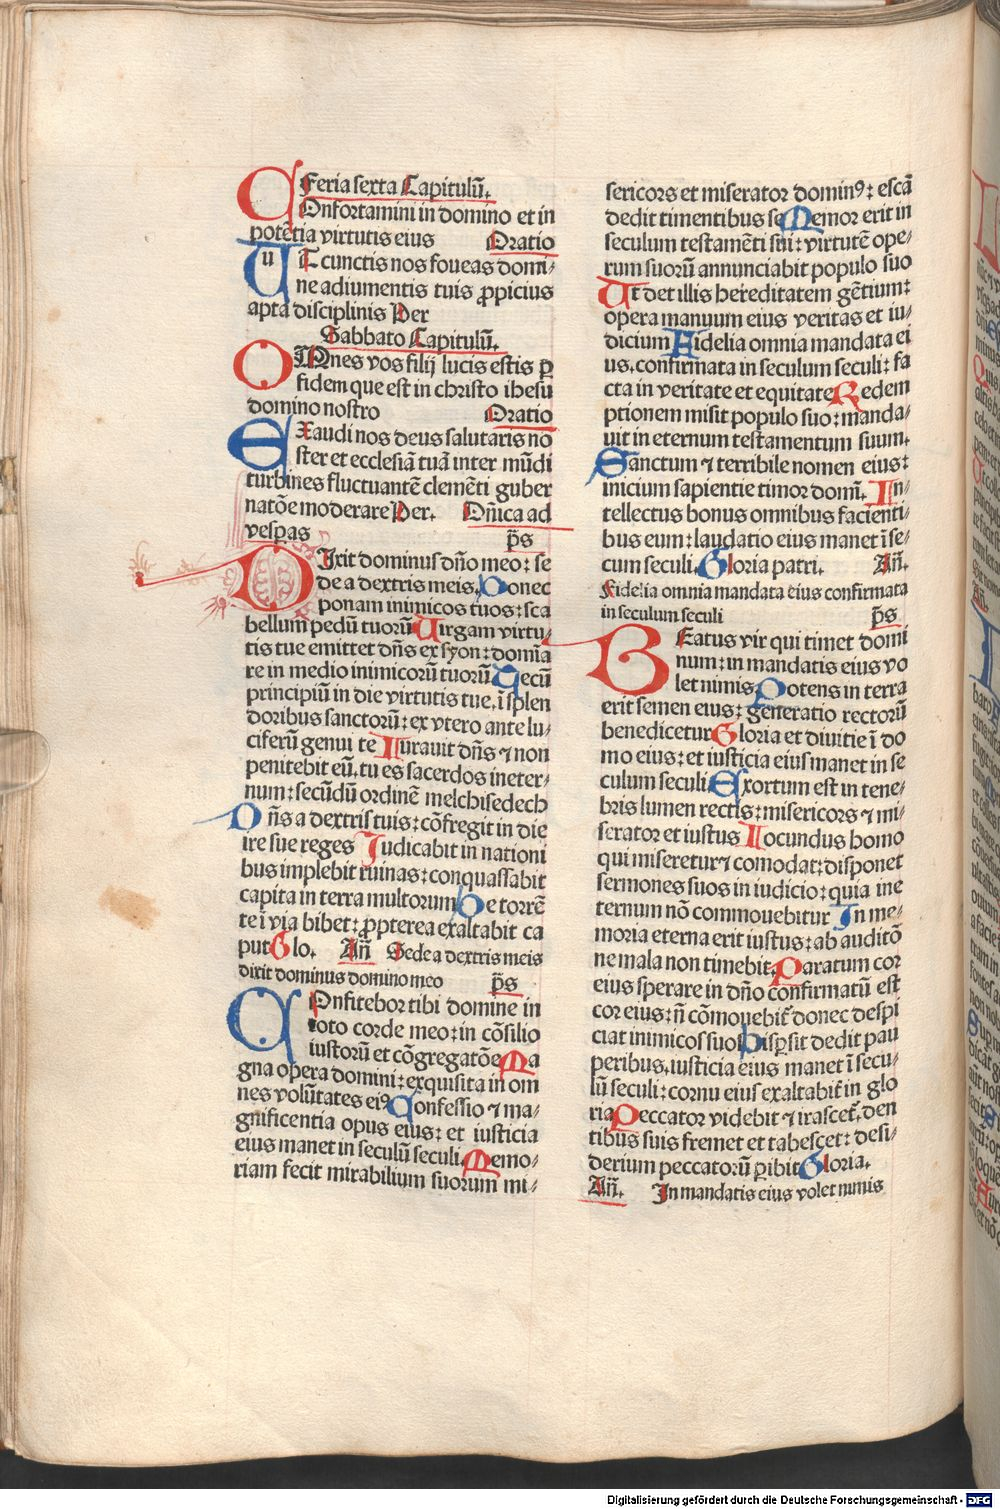 Feria sexta Capitulū.
COnfortamini in domino et in
potētia virtutis eius Oratio
UT cunctis nos foueas domi⸗
ne adiumentis tuis ꝓpicius
apta disciplinis Per
Sabbato Capitulū.
OMnes vos filij lucis estis ꝑ
fidem que est in christo ihesu
domino nostro Oratio
EXaudi nos deus salutaris no
ster et ecclesiā tuā inter mūdi
turbines fluctuantē clemēti guber
natōe moderare Per. Dn̄ica ad
vesp̱as p̄s
DIxit dominus dn̄o meo: se
de a dextris meis. Donec
ponam inimicos tuos: sca
bellum pedū tuorū Uirgam virtu⸗
tis tue emittet dn̄s ex syon: domīa
re in medio inimicorū tuorū Tecū
principiū in die virtutis tue, ī splen
doribus sanctorū: ex vtero ante lu⸗
ciferū genui te Iurauit dn̄s ⁊ non
penitebit eū, tu es sacerdos ineter⸗
num: secūdū ordinē melchisedech
Dn̄s a dextris tuis: cōfregit in die
ire sue reges Iudicabit in nationi
bus implebit ruinas: conquassabit
capita in terra multorum De torrē
te ī via bibet: ꝓpterea exaltabit ca
put Glo. An̄ Sede a dextris meis
dixit dominus domino meo p̄s
COnfitebor tibi domine in
toto corde meo: in cōsilio
iustorū et cōgregatōe Ma
gna opera domini: exquisita in om
nes volūtates eiꝰ Confessio ⁊ ma⸗
gnificentia opus eius: et iusticia
eius manet in seculū seculi. Memo⸗
riam fecit mirabilium suorum mi⸗
sericors et miserator dominꝰ: escā
dedit timentibus se Memor erit in
seculum testamēti sui: virtutē ope⸗
rum suorū annunciabit populo suo
Ut det illis hereditatem gētium:
opera manuum eius veritas et iu⸗
dicium Fidelia omnia mandata ei
us, confirmata in seculum seculi: fa
cta in veritate et equitate Redem
ptionem misit populo suo: manda⸗
uit in eternum testamentum suum.
Sanctum ⁊ terribile nomen eius:
inicium sapientie timor domī. In⸗
tellectus bonus omnibus facienti⸗
bus eum: laudatio eius manet ī se⸗
cum seculi. Gloria patri. An̄.
Fidelia omnia mandata eius confirmata
in seculum seculi p̄s
BEatus vir qui timet domi
num: in mandatis eius vo
let nimis Potens in terra
erit semen eius: generatio rectorū
benedicetur Gloria et diuitie ī do
mo eius: et iusticia eius manet in se
culum seculi Exortum est in tene⸗
bris lumen rectis: misericors ⁊ mi⸗
serator et iustus Iocundus homo
qui miseretur ⁊ comodat: disponet
sermones suos in iudicio: quia ine
ternum nō commouebitur In me⸗
moria eterna erit iustus: ab auditō
ne mala non timebit. Paratum cor
eius sperare in dn̄o confirmatū est
cor eius: n̄ cōmouebit̄ donec despi
ciat inimicos suos Disꝑsit dedit pau
peribus, iusticia eius manet ī secu⸗
lū seculi: cornu eius exaltabit̄ in glo
ria Peccator videbit ⁊ irascet̄, den
tibus suis fremet et tabescet: desi⸗
derium peccatorū ꝑibit Gloria.
An̄. In mandatis eius volet nimis
Digitalisierung gefördert durch die Deutsche Forschungsgemeinschaft - DFG